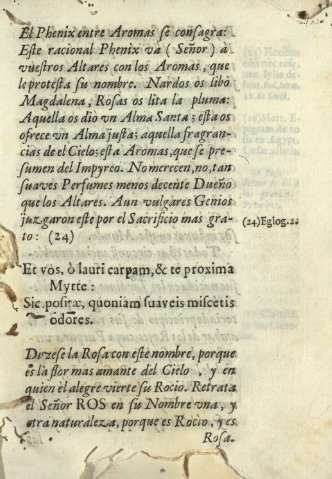 El Phenix entre Aromas se consagra:
Este racional Phenix và ( Señor ) à
vuestros Altares con los Aromas, que
le protesta su nombre. Nardos os libò
Magdalena, Rosas os lita la pluma:
Aquella os diò vn Alma Santa; esta os
ofrece vn Alma justa; aquella fragran-
cias de el Cielo; esta Aromas, que se pre-
sumen del Impyreo. No merecen, no, tan
suaves Perfumes menos decente Dueño
que los Altares. Aun vulgares Genios
juzgaron este por el Sacrificio mas gra-
to: (24)
(24) Eglog. 2.
Et vos, ò lauri carpam, & te proxima
Myrte:
Sic positæ, quoniam suaveis miscetis
odores.
Dizese la Rosa con este nombre, porque
es la flor mas amante del Cielo , y en
quien el alegre vierte su Rocio. Retrata
el Señor ROS en su Nombre vna, y
otra naturaleza, porque es Rocio, y es
Rosa.